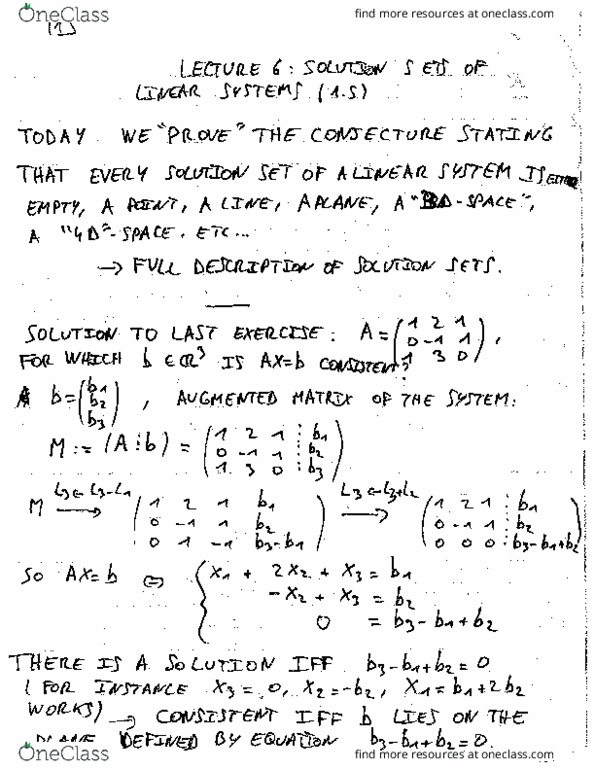 OneClass
find more resources at oneclass.com
(1)
LECTURE 6: SOLUTION SETS OF
LINEAR SYSTEMS (1.5)
TODAY WE "PROVE" THE CONJECTURE STATING
THAT EVERY SOLUTION SET OF A LINEAR SYSTEM IS EITHER
EMPTY, A POINT, A LINE, A PLANE, A "3D-SPACE",
A "4D"-SPACE. ETC...
→ FULL DESCRIPTION OF SOLUTION SETS.
SOLUTION TO LAST EXERCISE: A = (1 2 1
0 -1 1
1 3 0),
FOR WHICH b ∈ ℝ³ IS AX=b CONSISTENT?
b = (b1
b2
b3), AUGMENTED MATRIX OF THE SYSTEM:
M := (A ⋮ b) = (1 2 1 ⋮ b1
0 -1 1 ⋮ b2
1 3 0 ⋮ b3)
M L3←L3-L1 → (1 2 1 b1
0 -1 1 b2
0 1 -1 b3-b1) L3←L3+L2 → (1 2 1 ⋮ b1
0 -1 1 ⋮ b2
0 0 0 ⋮ b3-b1+b2)
SO AX=b ⇔ { x1 + 2x2 + x3 = b1
-x2 + x3 = b2
0 = b3-b1+b2
THERE IS A SOLUTION IFF b3-b1+b2=0
(FOR INSTANCE x3 = 0, x2=-b2, x1=b1+2b2
WORKS) → CONSISTENT IFF b LIES ON THE
PLANE DEFINED BY EQUATION b3-b1+b2=0.
OneClass
find more resources at oneclass.com